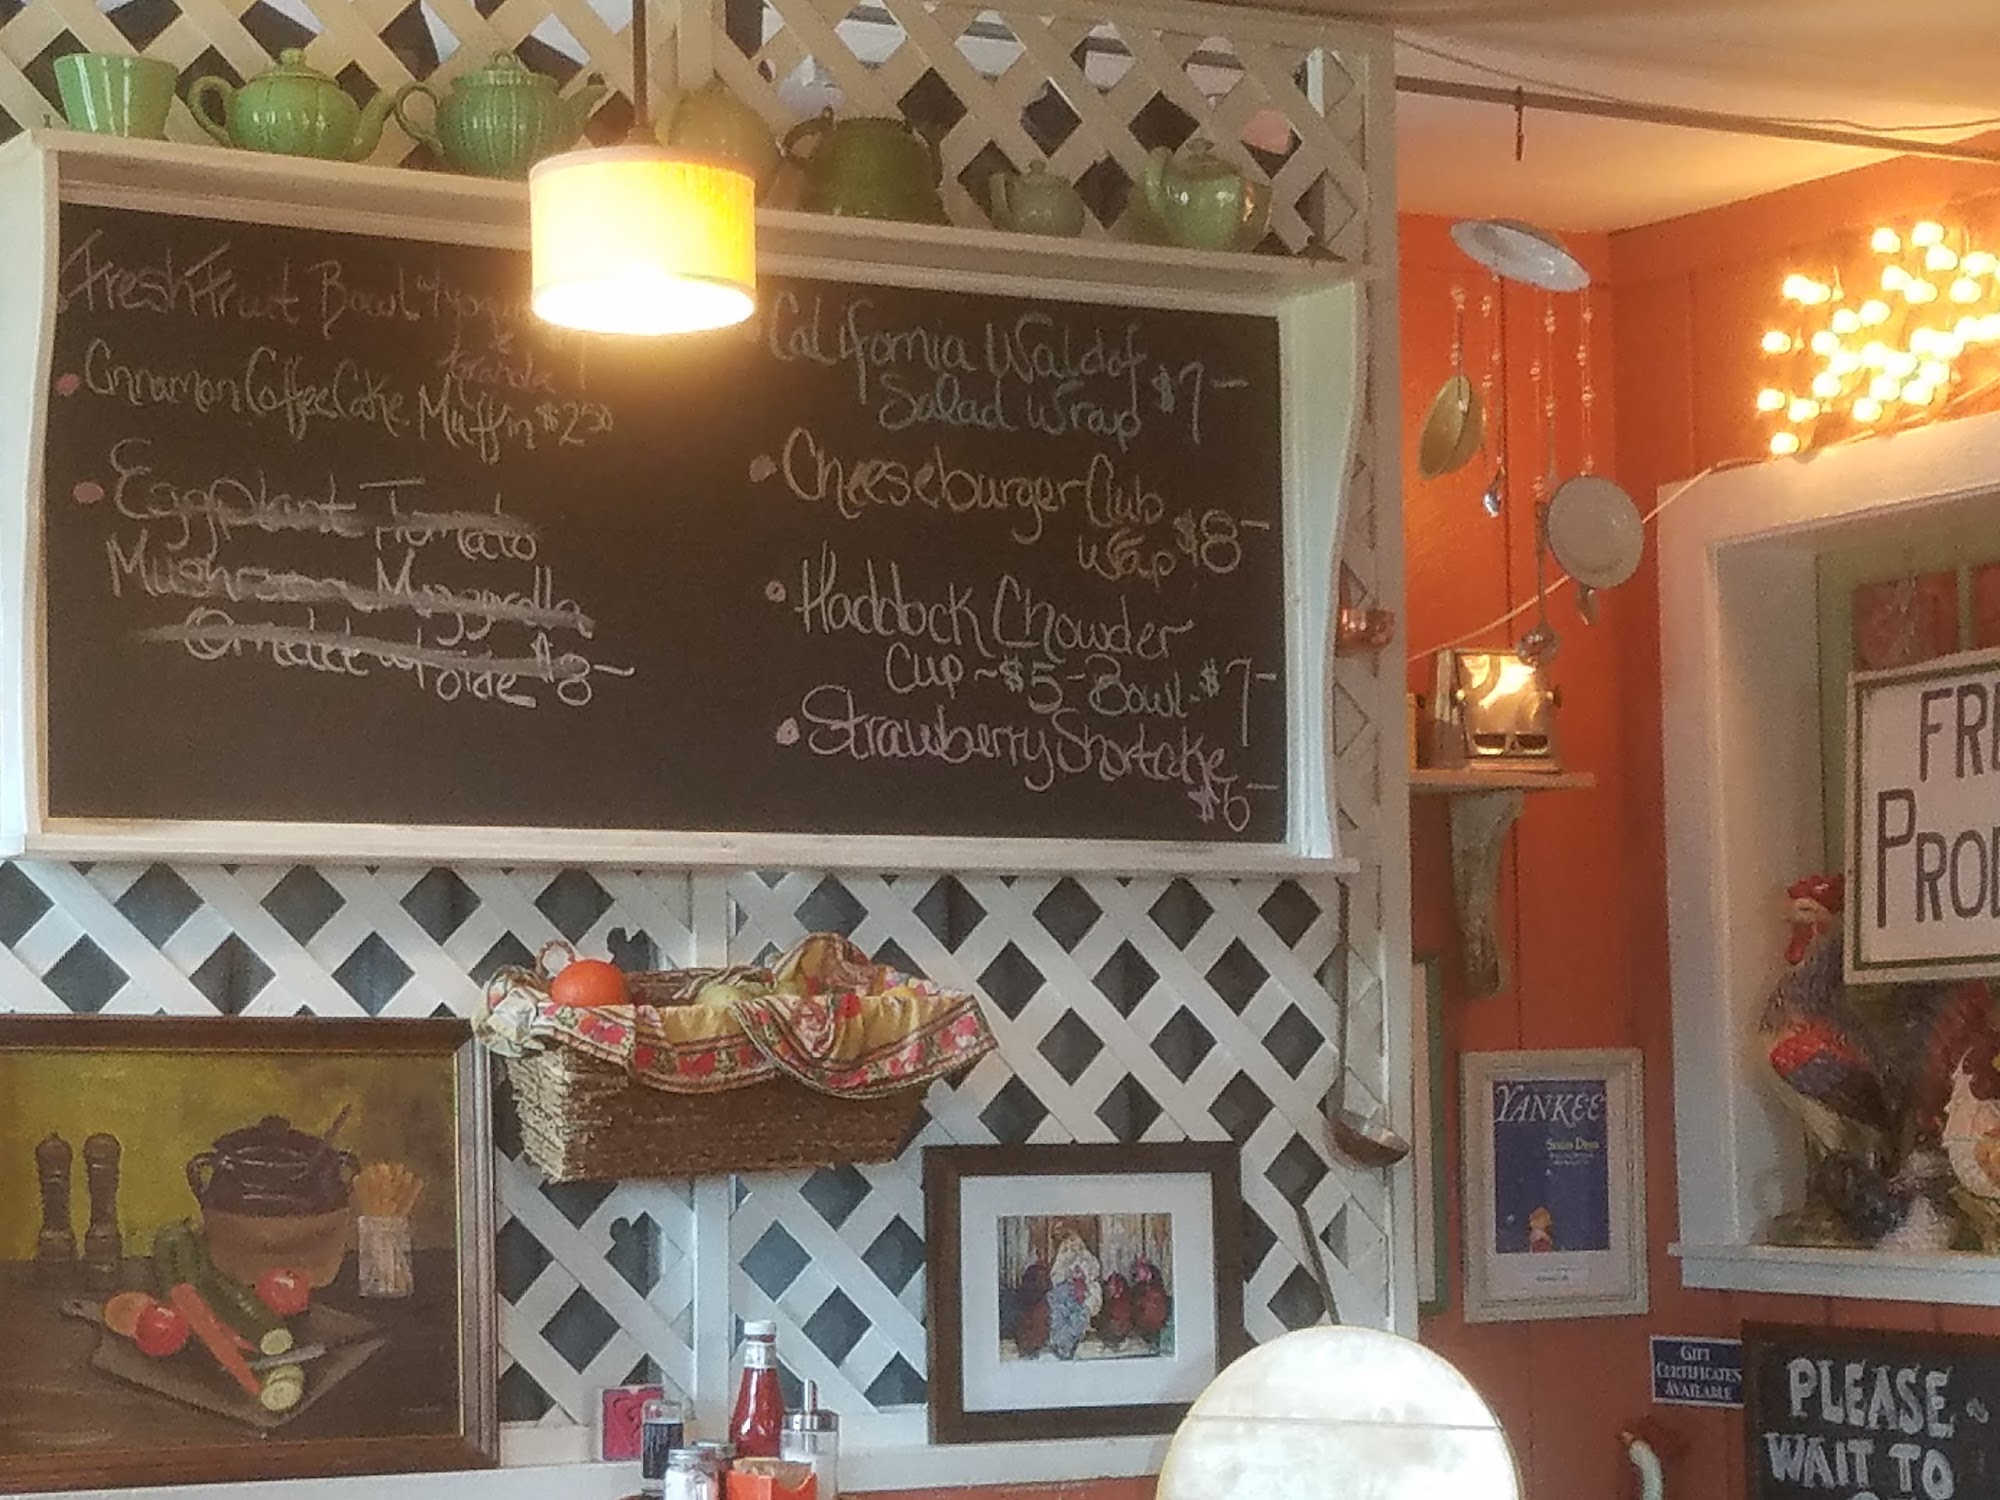 Fresh Fruit Bowl w/
Granola
Cinnamon Coffee Cake Muffin $2.50
Eggplant Tomato
Mushroom Mozzarella
Omelet w/ side $8-
California Waldof
Salad Wrap $7-
Cheeseburger Club
Wrap $8-
Haddock Chowder
Cup ~ $5 - Bowl - $7-
Strawberry Shortcake
$6-
FRE
PROD
YANKEE
GIFT
CERTIFICATES
AVAILABLE
PLEASE ~
WAIT TO